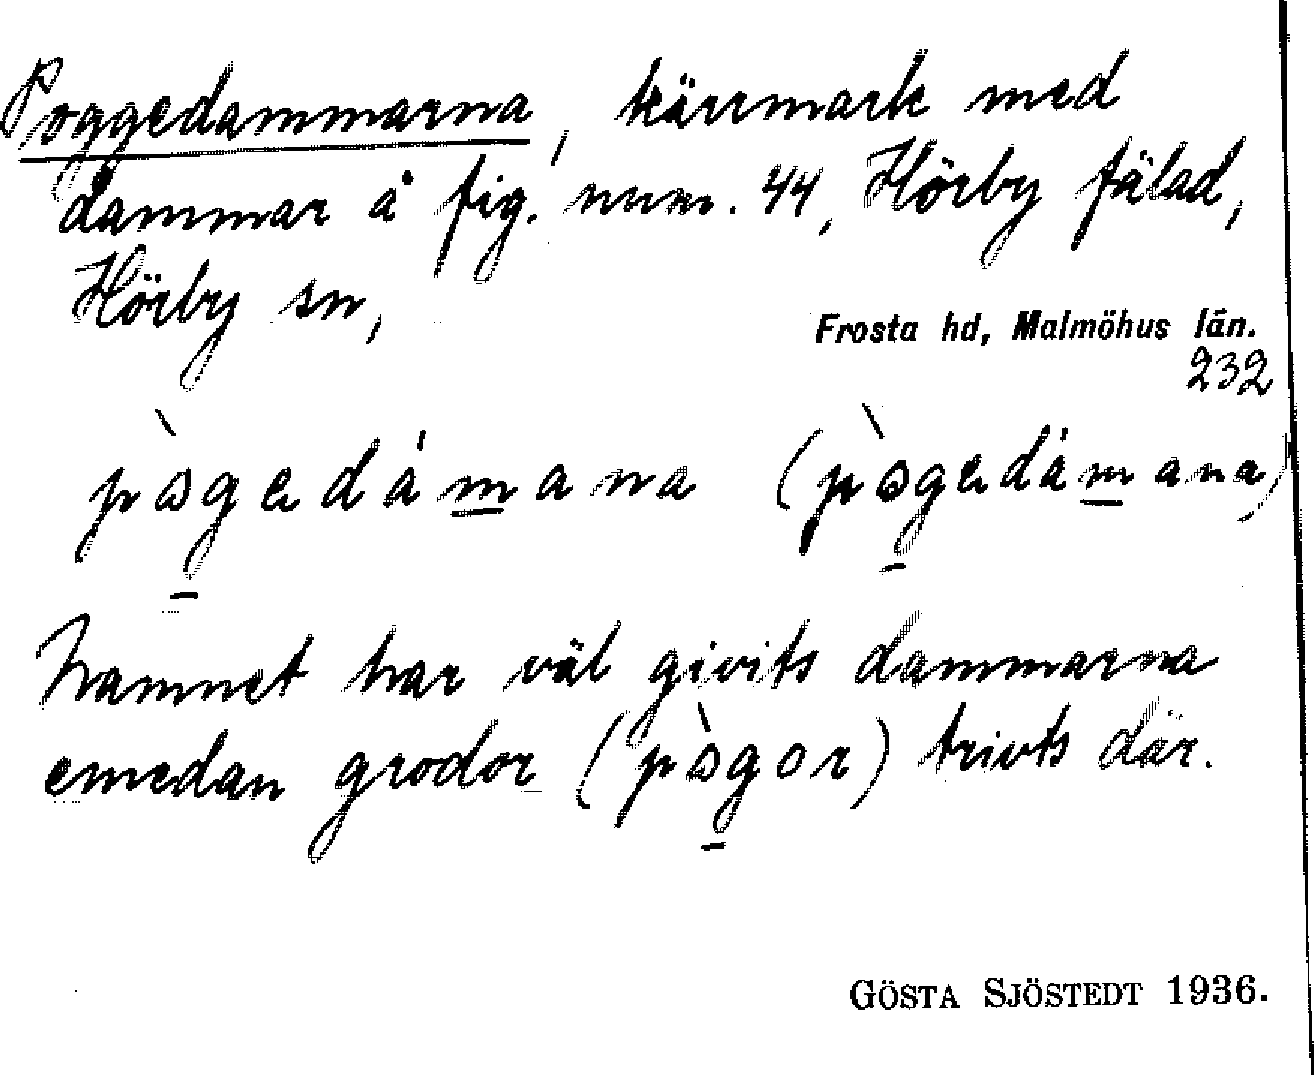 Poggedammarna, kärrmark med
dammar å fig. num. 44, Hörby fälad,
Hörby sn,
Frosta hd, Malmöhus län.
232
pògedámana (pògedámana)
Namnet har väl givits dammarna
emedan grodor (pògor) trivts där.
GÖSTA SJÖSTEDT 1936.